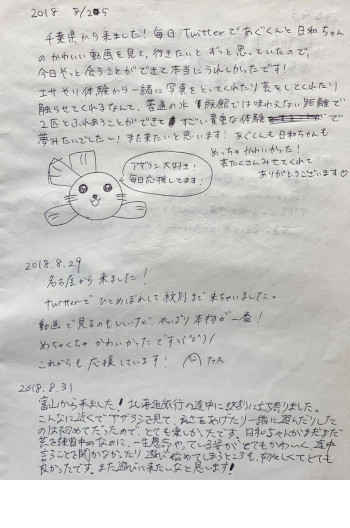 2018 8/25
千葉県から来ました！毎日Twitterであぐんと日和ちゃん
のかわいい動画を見て、行きたいとずっと思っていたので、
今日やっと会うことができて本当にうれしかったです！
エサやり体験から一緒に写真をとってくれたり芸をしてくれたり
触らせてくれるなんて、普通の水族館では味わえない距離で
2匹とふれあうことができてすごい貴重な体験で
夢みたいでした〜！また来たいと思います！あぐんも日和ちゃんも
めっちゃかわいかった！
芸たくさんみせてくれて
ありがとうございます♡
アザラシ大好き！
毎日応援してます！
2018.8.29
名古屋から来ました！
Twitterでひとめぼれして紋別まで来ちゃいました。
動画で見るのもいいけど、やっぱり本物が一番！
めちゃくちゃかわいかったですヽ(°o°)ﾉ
これからも応援しています！
2018.8.31
富山から来ました！北海道旅行の途中に紋別に立ち寄りました。
こんなに近くでアザラシを見て、えさをあげたり一緒に遊んだりした
のは初めてだったので、とても楽しかったです。日和ちゃんがまだまだ
芸を練習中なのに、一生懸命やっている姿がとてもかわいく、途中
言うことを聞かなかったり、遊び始めてしまうところも、初々しくてとても
良かったです。また遊びに来たいなと思います！